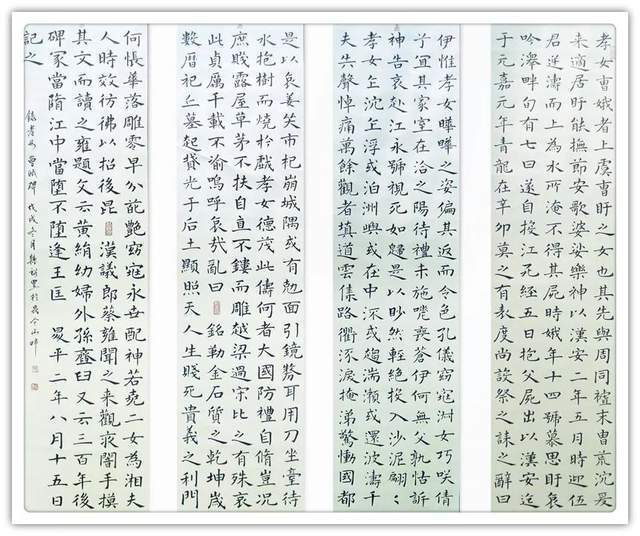 孝女曹娥者上虞曹盱之女也其先與周同祖末胄荒沈爰
来適居盱能撫節安歌婆娑樂神以漢安二年五月時迎伍
君逆濤而上為水所淹不得其屍時娥年十四號慕思盱哀
吟澤畔旬有七日遂自投江死經五日抱父屍出以漢安迄
于元嘉元年青龍在辛卯莫之有表度尚設祭之誄之辭曰
伊惟孝女曄曄之姿偏其返而令色孔儀窈窕淑女巧咲倩
兮宜其家室在洽之陽待禮未施嗟喪蒼伊何無父孰怙訴
神告哀赴江永號視死如歸是以眇然輕絕投入沙泥翩翩
孝女乍沈乍浮或泊洲嶼或在中流或趨湍瀨或還波濤千
夫失聲悼痛萬餘觀者填道雲集路衢流淚掩涕驚慟國都
是以哀姜哭市杞崩城隅或有勉面引鏡剺耳用刀坐臺待
水抱樹而燒於戲孝女德茂此儔何者大國防禮自脩豈況
庶賤露屋草茅不扶自直不鏤而雕越梁過宋比之有殊哀
此貞厲千載不渝嗚呼哀哉亂曰 銘勒金石質之乾坤歲
數曆祀丘墓起賁光于后土顯照天人生賤死貴義之利門
何悵華落雕零早分葩艷窈窕永世配神若堯二女為湘夫
人時效彷彿以招後昆 漢議郎蔡雍聞之来觀夜闇手摸
其文而讀之雍題文云黃絹幼婦外孫虀臼又云三百年後
碑冢當隋江中當墮不墮逢王匡 昇平二年八月十五日
記之
錄孝女曹娥碑 戊戌冬月